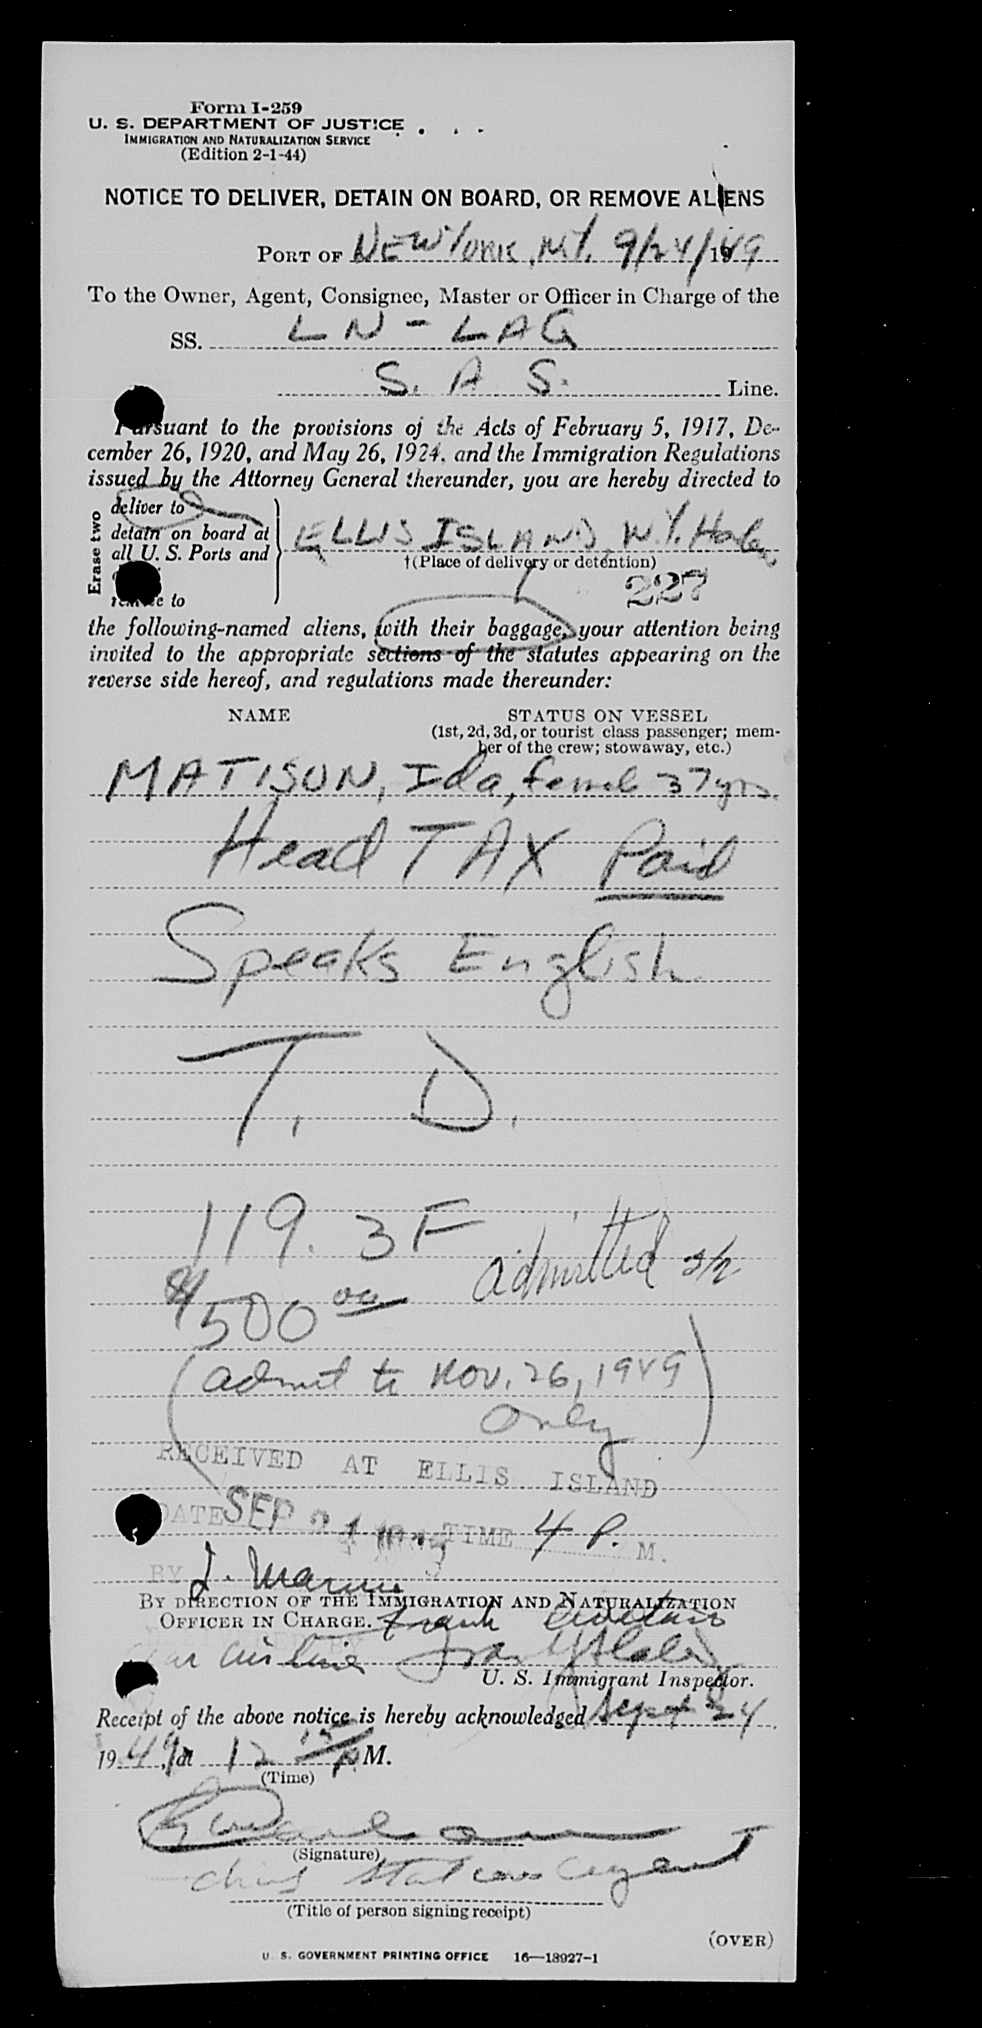 Form I-259
U. S. DEPARTMENT OF JUSTICE
IMMIGRATION AND NATURALIZATION SERVICE
(Edition 2-1-44)
NOTICE TO DELIVER, DETAIN ON BOARD, OR REMOVE ALIENS
PORT OF NEW YORK, N.Y. 9/24/1949
To the Owner, Agent, Consignee, Master or Officer in Charge of the
SS. LN-LAG
S. A. S. Line.
Pursuant to the provisions of the Acts of February 5, 1917, De-
cember 26, 1920, and May 26, 1924, and the Immigration Regulations
issued by the Attorney General thereunder, you are hereby directed to
Erase two
deliver to
detain on board at
all U. S. Ports and
remove to
ELLIS ISLAND, N.Y.
†(Place of delivery or detention)
227
the following-named aliens, with their baggage, your attention being
invited to the appropriate sections of the statutes appearing on the
reverse side hereof, and regulations made thereunder:
NAME STATUS ON VESSEL
(1st, 2d, 3d, or tourist class passenger; mem-
ber of the crew; stowaway, etc.)
MATISON, Ida, female 37 yrs.
Head TAX Paid
Speaks English
T. D.
119. 3F
admitted
$500 00
(admit to Nov. 26, 1949
only)
RECEIVED AT ELLIS ISLAND
DATE SEP 24 1949 TIME 4 P. M.
BY
BY DIRECTION OF THE IMMIGRATION AND NATURALIZATION
OFFICER IN CHARGE. Frank
U. S. Immigrant Inspector.
Receipt of the above notice is hereby acknowledged Sept 24
1949, at 12 15 P M.
(Time)
(Signature)
Station Agent
(Title of person signing receipt)
(OVER)
U. S. GOVERNMENT PRINTING OFFICE 16—18927-1